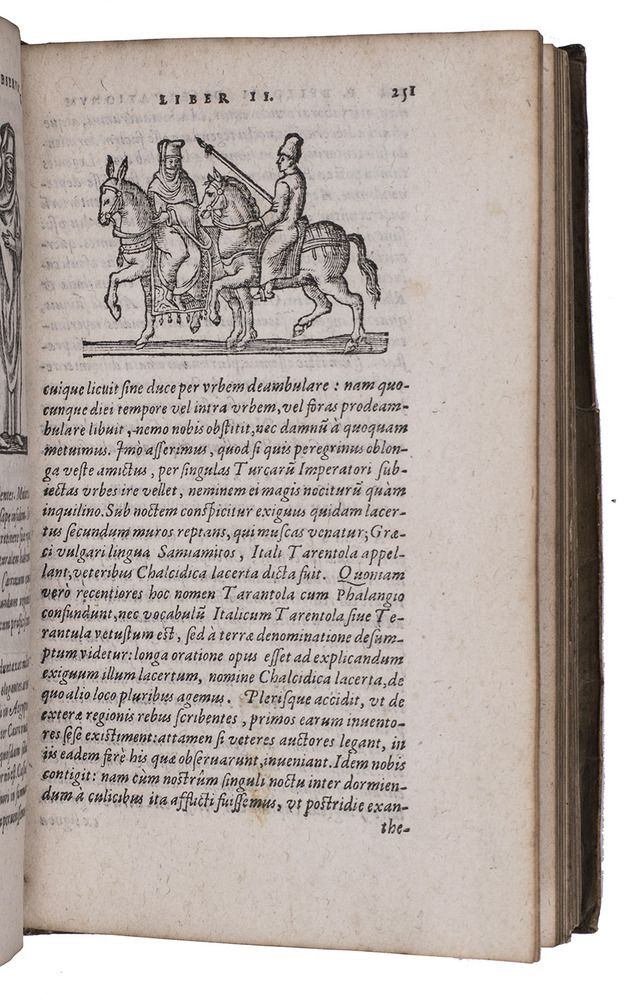 LIBER II. 251
cuique licuit sine duce per vrbem deambulare : nam quo-
cunque diei tempore vel intra vrbem, vel foras prodeam-
bulare libuit, nemo nobis obstitit, nec damnũ à quoquam
metuimus. Imò asserimus, quod si quis peregrinus oblon-
ga veste amictus, per singulas Turcarũ Imperatori sub-
iectas vrbes ire vellet, neminem ei magis nociturũ quàm
inquilino. Sub noctem conspicitur exiguus quidam lacer-
tus secundum muros reptans, qui muscas venatur; Græ-
ci vulgari lingua Samiamitos, Itali Tarentola appel-
lant, veteribus Chalcidica lacerta dicta fuit. Quoniam
verò recentiores hoc nomen Tarantola cum Phalangio
confundunt, nec vocabulũ Italicum Tarentola siue Te-
rantula vetustum est, sed à terræ denominatione desum-
ptum videtur: longa oratione opus esset ad explicandum
exiguum illum lacertum, nomine Chalcidica lacerta, de
quo alio loco pluribus agemus. Plerisque accidit, vt de
exteræ regionis rebus scribentes, primos earum inuento-
res sese existiment: attamen si veteres auctores legant, in
iis eadem ferè his quæ obseruarunt, inueniant. Idem nobis
contigit: nam cùm nostrûm singuli noctu inter dormien-
dum à culicibus ita afflicti fuissemus, vt postridie exan-
the-